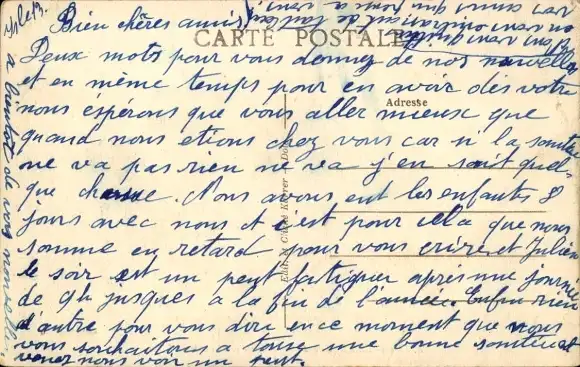 Bien chères amis
CARTE POSTALE
Deux mots pour vous donnez de nos nouvelles
Adresse
et en même temps pour en avoir des votre
nous espérons que vous aller mieux que
quand nous etions chez vous car si la santée
ne va pas rien ne va j'en sait quel-
que chause. Nous avons eut les enfants 8
jours avec nous et c'est pour cela que nous
somme en retard pour vous écrire et Julien
le soir est un peut fatiguer après une journée
de 9h jusques a la fin de l'année. Enfin rien
d'autre pour vous dire en ce moment que nous
vous souhaitons a tousse une bonne santée et
venez nous voir un peut.
a bientot de vos nouvelles
Edit.